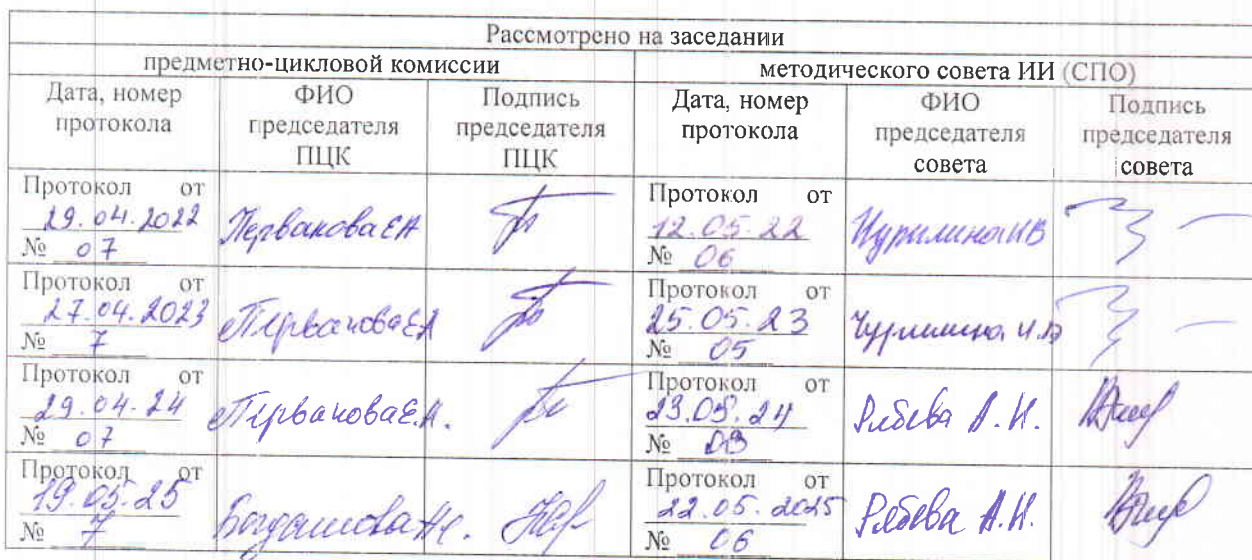 Рассмотрено на заседании
предметно-цикловой комиссии
методического совета ИИ (СПО)
Дата, номер протокола
ФИО председателя ПЦК
Подпись председателя ПЦК
Дата, номер протокола
ФИО председателя совета
Подпись председателя совета
Протокол от
29.04.2022
№ 07
Первакова ЕА
Протокол от
12.05.22
№ 06
Протокол от
27.04.2023
№ 7
Первакова ЕА
Протокол от
25.05.23
№ 05
Чурилина И.В
Протокол от
29.04.24
№ 07
Первакова Е.А.
Протокол от
23.05.24
№
Рябева А.Н.
Протокол от
19.05.25
№ 7
Протокол от
22.05.2025
№ 06
Рябева А.Н.